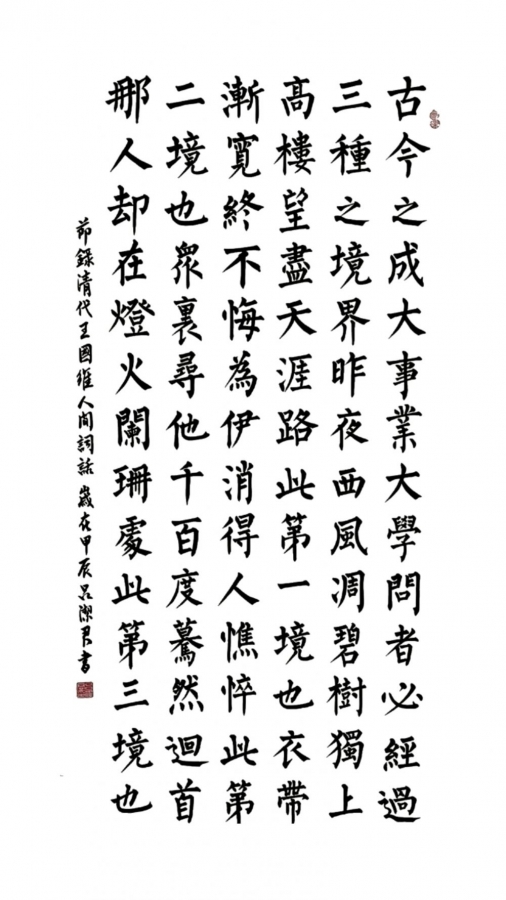 古今之成大事業大學問者必經過
三種之境界昨夜西風凋碧樹獨上
高樓望盡天涯路此第一境也衣帶
漸寬終不悔為伊消得人憔悴此第
二境也眾裏尋他千百度驀然迴首
那人却在燈火闌珊處此第三境也
節錄清代王國維人間詞話 歲在甲辰呂潔君書